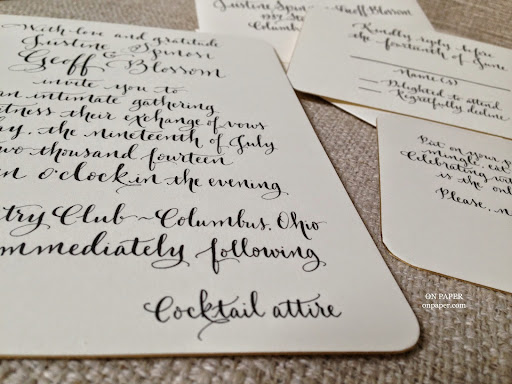 With love and gratitude
Justine Spinosi
Geoff Blossom
invite you to
an intimate gathering
witness their exchange of vows
the nineteenth of July
two thousand fourteen
o'clock in the evening
Club ~ Columbus, Ohio
immediately following
Cocktail attire
Justine Geoff Blossom
Kindly reply before
the fourteenth of June
Name(s)
Delighted to attend
Regretfully decline
Put on your
mingle, eat
Celebrating
is the
Please,
ON PAPER
onpaper.com